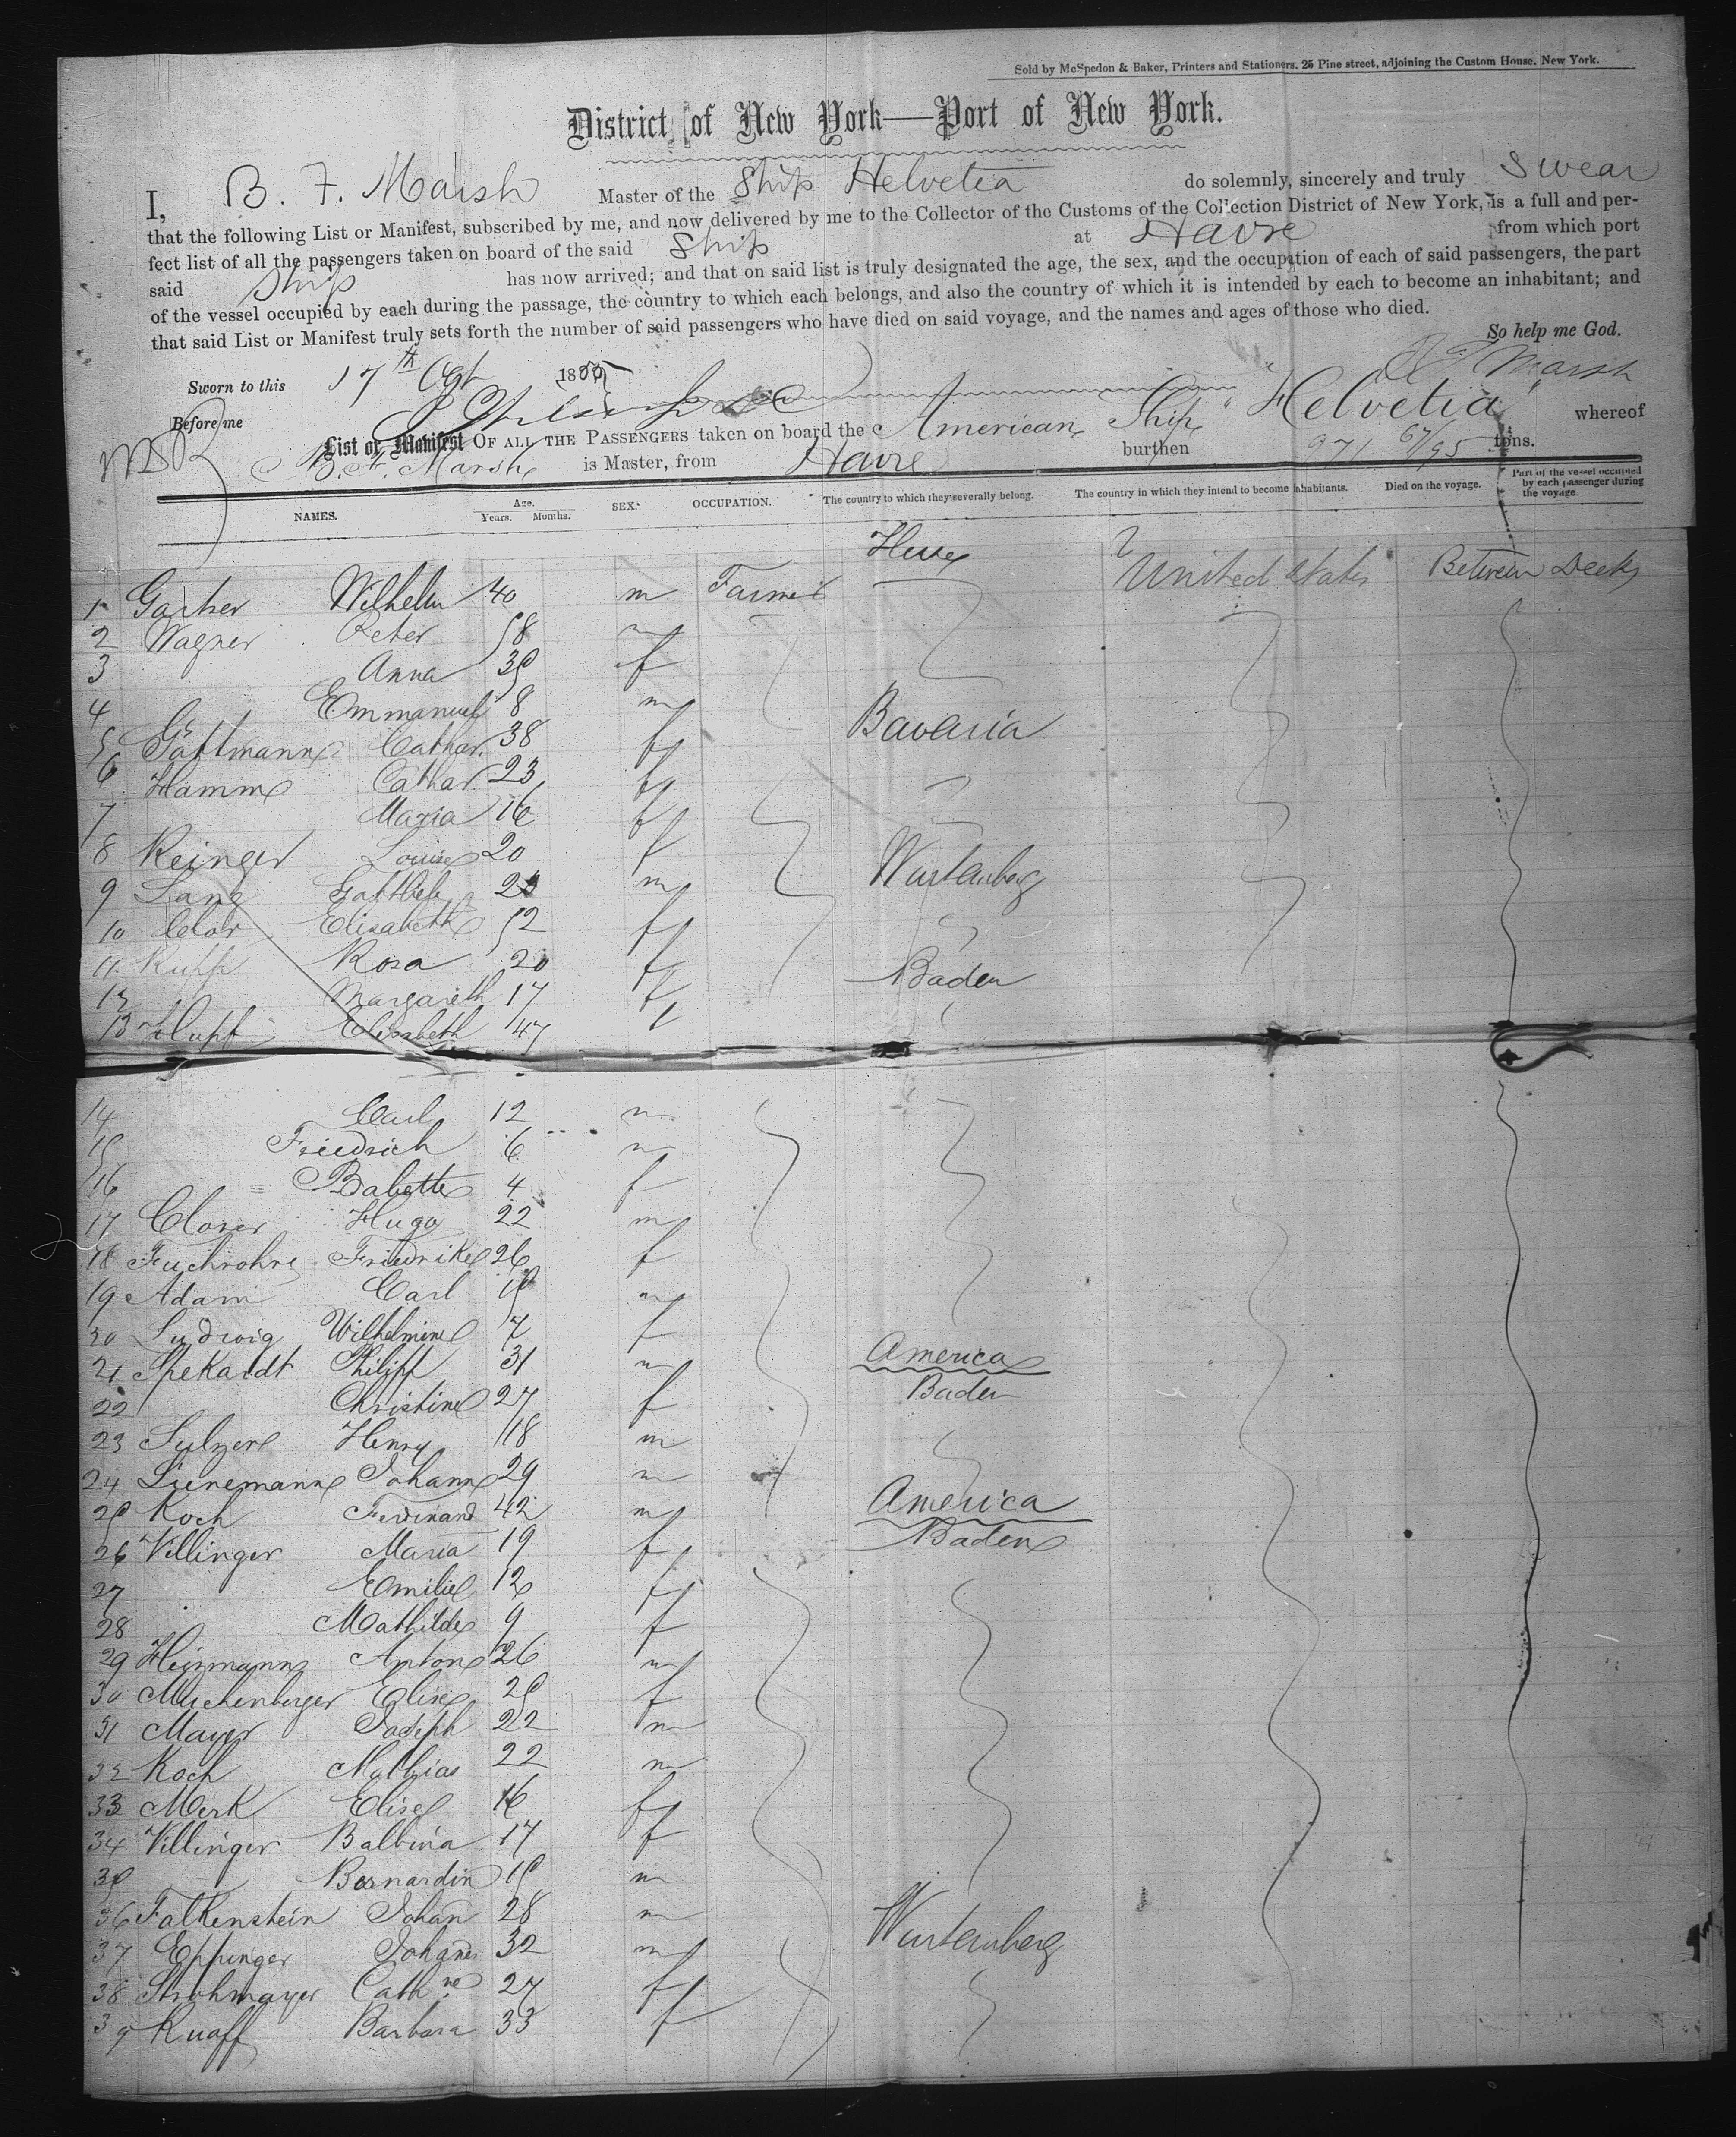 Sold by McSpedon & Baker, Printers and Stationers. 25 Pine street, adjoining the Custom House. New York.
District of New York—Port of New York.
I, B. F. Marsh Master of the Ship Helvetia do solemnly, sincerely and truly swear
that the following List or Manifest, subscribed by me, and now delivered by me to the Collector of the Customs of the Collection District of New York, is a full and per-
fect list of all the passengers taken on board of the said Ship at Havre from which port
said Ship has now arrived; and that on said list is truly designated the age, the sex, and the occupation of each of said passengers, the part
of the vessel occupied by each during the passage, the country to which each belongs, and also the country of which it is intended by each to become an inhabitant; and
that said List or Manifest truly sets forth the number of said passengers who have died on said voyage, and the names and ages of those who died.
So help me God.
Sworn to this 17th 1855 B F Marsh
Before me
List or Manifest OF ALL THE PASSENGERS taken on board the American Ship "Helvetia" whereof
B. F. Marsh is Master, from Havre burthen 971 67/95 tons.
NAMES. Age. Years. Months. SEX. OCCUPATION. The country to which they severally belong. The country in which they intend to become inhabitants. Died on the voyage. Part of the vessel occupied by each passenger during the voyage.
Hesse
1 Wilhelm 40 m Farmer United States Between Decks
2 Wagner Peter 58 m
3 Anna 35 f
4 Emmanuel 8 m
5 Gattmann Cathar. 38 f Bavaria
6 Hamm Cathar. 23 f
7 Maria 16 f
8 Reinger Louise 20 f
9 Lang Gottlieb m Wurtemberg
10 Clor Elisabeth 52 f
11 Rupp Rosa 20 f
12 Margareth 17 f Baden
13 Hupf Elisabeth 47 f
14 Carl 12 m
15 Friedrich 6 m
16 = Babette 4 f
17 Closer Hugo 22 m
18 Friedrike 26 f
19 Adam Carl m
20 Ludwig Wilhelmine 7 f
21 Spekardt Philipp 31 m America
22 Christine 27 f Baden
23 Sulzer Henry 18 m
24 Lienemann Johann 29 m
25 Koch Ferdinand 42 m America
26 Villinger Maria 19 f Baden
27 Emilie 12 f
28 Mathilde 9 f
29 Heizmann Anton 26 m
30 Muchenberger Elise 25 f
31 Mayer Joseph 22 m
32 Koch Mathias 22 m
33 Merk Elise 16 f
34 Villinger Balbina 17 f
35 Bernardin 15 m
36 Falkenstein Johan 28 m
37 Eppinger Johanes 32 m Wurtemberg
38 Strohmayer Cathne 27 f
39 Knaff Barbara 33 f